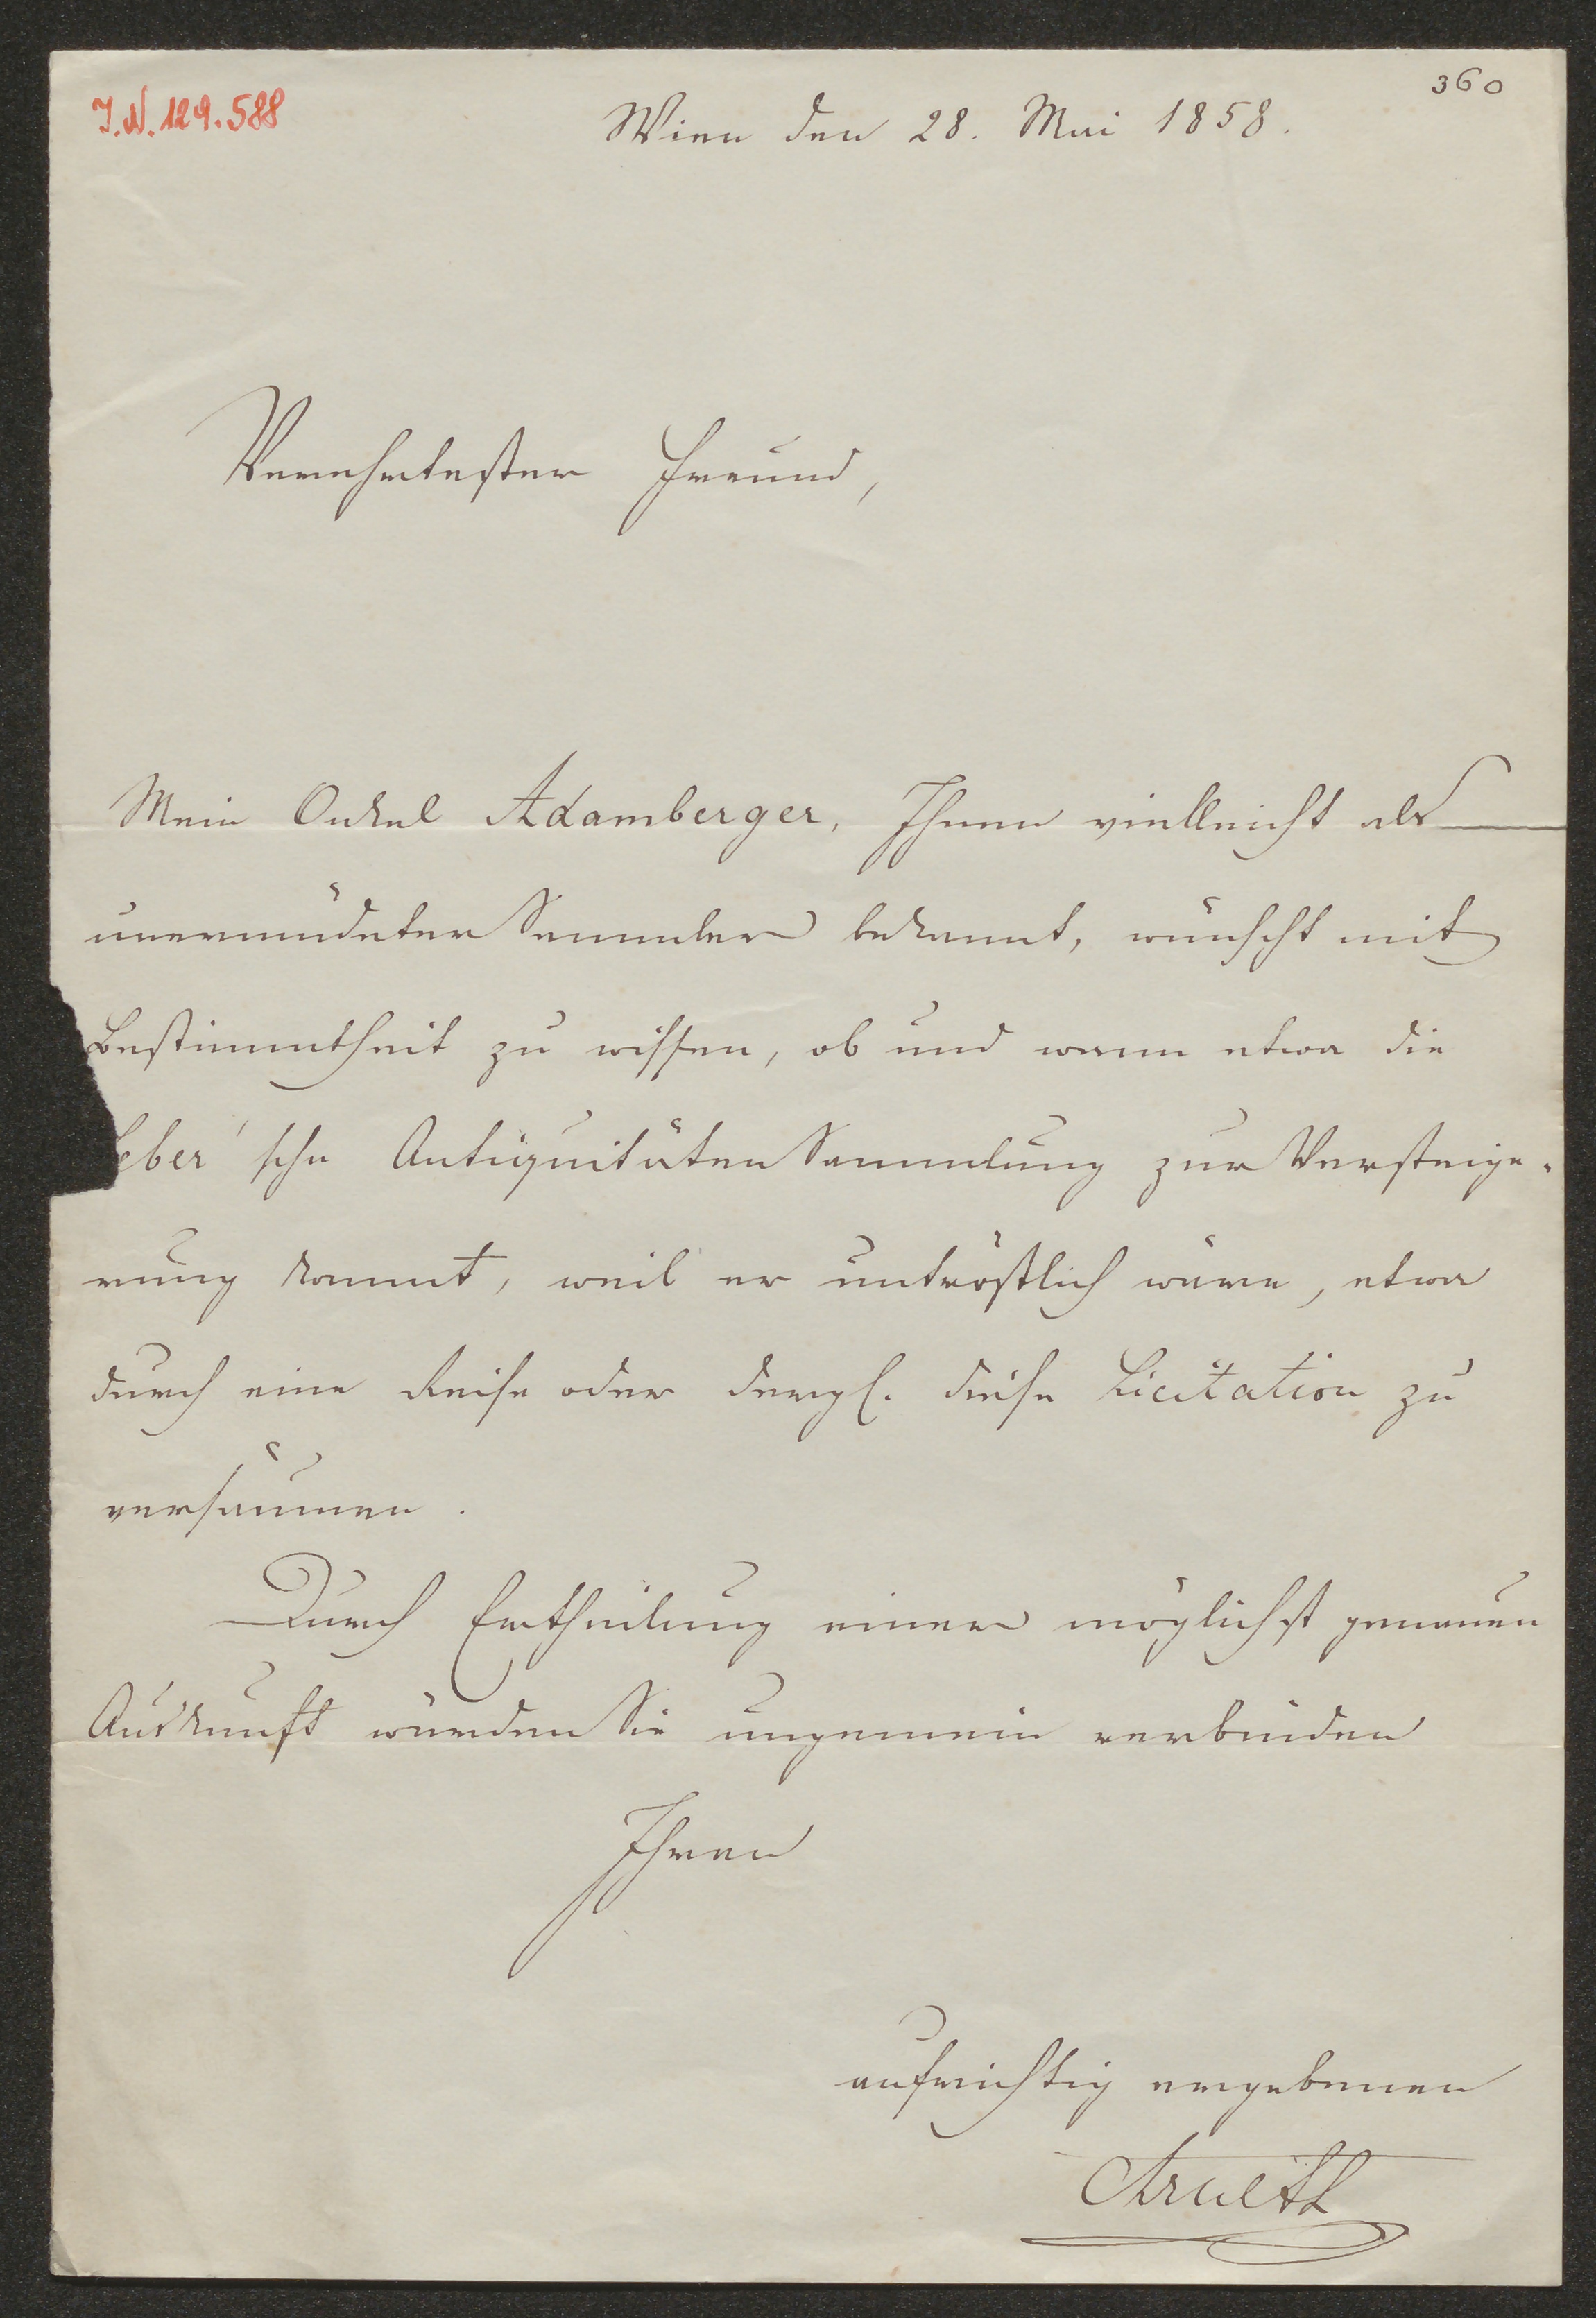 360
I.N. 129.588
Wien den 28. Mai 1858.
Verehrtester Freund,
Mein Onkel Adamberger, Ihnen vielleicht als
unermüdeter Sammler bekannt, wünscht mit
Bestimmtheit zu wissen, ob und wann etwa die
eber'sche Antiquitäten Sammlung zur Versteige-
rung kommt, weil er untröstlich wäre, etwa
durch eine Reise oder dergl. diese Licitation zu
versäumen.
Durch Ertheilung einer möglichst genauen
Auskunft würden Sie ungemein verbinden
Ihren
aufrichtig ergebenen
Arneth